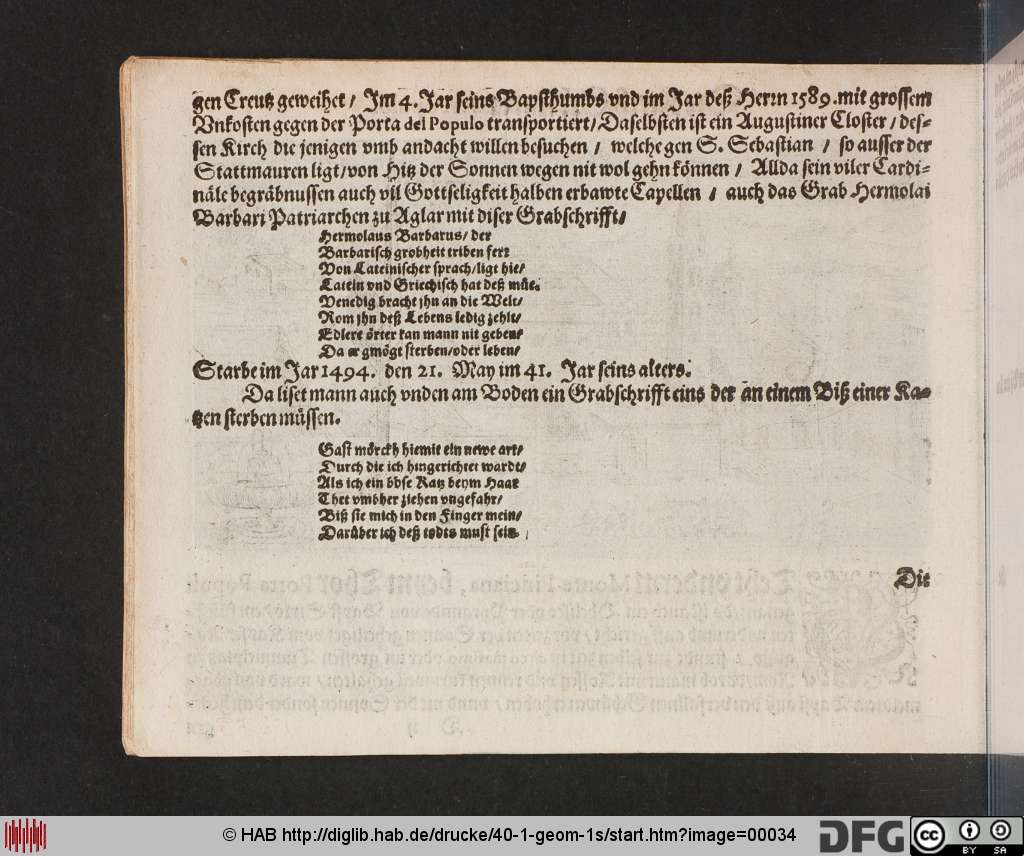 gen Creutz geweihet / Im 4. Jar seins Bapsthumbs vnd im Jar deß Herrn 1589. mit grossem
Vnkosten gegen der Porta del Populo transportiert / Daselbsten ist ein Augustiner Closter / des-
sen Kirch die jenigen vmb andacht willen besuchen / welche gen S. Sebastian / so ausser der
Stattmauren ligt / von Hitz der Sonnen wegen nit wol gehn können / Allda sein viler Cardi-
näle begräbnussen auch vil Gottseligkeit halben erbawte Capellen / auch das Grab Hermolai
Barbari Patriarchen zu Aglar mit diser Grabschrifft /
Hermolaus Barbarus / der
Barbarisch grobheit triben ferr
Von Lateinischer sprach / ligt hie /
Latein vnd Griechisch hat deß müe.
Venedig bracht jhn an die Welt /
Rom jhn deß Lebens ledig zehlt /
Edlere örter kan mann nit geben /
Da er gmögt sterben / oder leben /
Starbe im Jar 1494. den 21. May im 41. Jar seins alters.
Da liset mann auch vnden am Boden ein Grabschrifft eins der an einem Biß einer Ka-
tzen sterben müssen.
Gast mörckh hiemit ein newe art /
Durch die ich hingerichtet wardt /
Als ich ein böse Katz beym Haar
Thet vmbher ziehen vngefahr /
Biß sie mich in den Finger mein /
Darüber ich deß todts must sein.
Die
© HAB http://diglib.hab.de/drucke/40-1-geom-1s/start.htm?image=00034
DFG
cc
BY SA